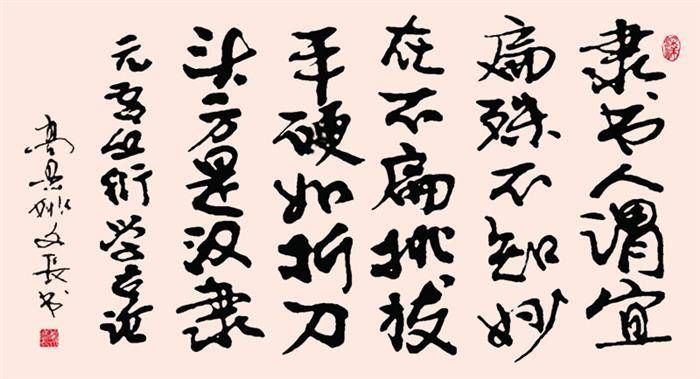 隶书人谓宜
扁殊不知妙
在不扁挑拔
平硬如折刀
头方是汉隶
元吾丘衍学古论
高 姚文長书